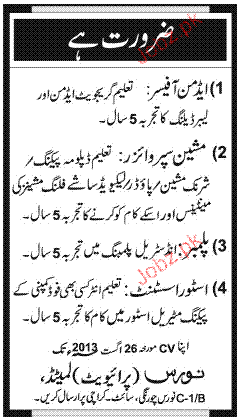 ضرورت ہے
1) ایڈمن آفیسر: تعلیم گریجویٹ ایڈمن اور
لیبر ڈیلنگ کا تجربہ 5 سال۔
2) مشین سپروائزر: تعلیم ڈپلومہ پیکنگ/
شرنک مشین/پاؤڈر/لیکیوڈ ساشے فلنگ مشینز کی
مینٹینس اور اسکے کام کو کرنے کا تجربہ 5 سال۔
3) پلمبر: انڈسٹریل پلمبنگ میں تجربہ 5 سال۔
4) اسٹور اسسٹنٹ: تعلیم انٹر کسی بھی فوڈ کمپنی کے
پیکنگ مٹیریل اسٹور میں کام کا تجربہ 5 سال۔
اپنا CV مورخہ 26 اگست 2013 تک
نورس (پرائیویٹ) لمیٹڈ،
C-1/B نورس چورنگی، سائٹ۔ کراچی پر ارسال کریں۔
Jobz.pk
Jobz.pk